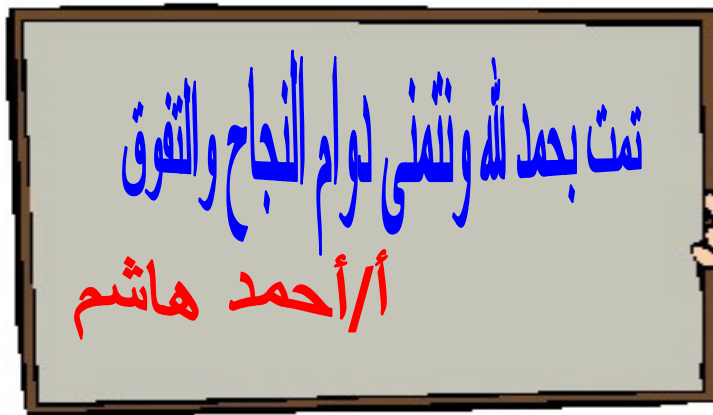 تمت بحمد لله ونتمنى دوام النجاح والتفوق
أ/أحمد هاشم